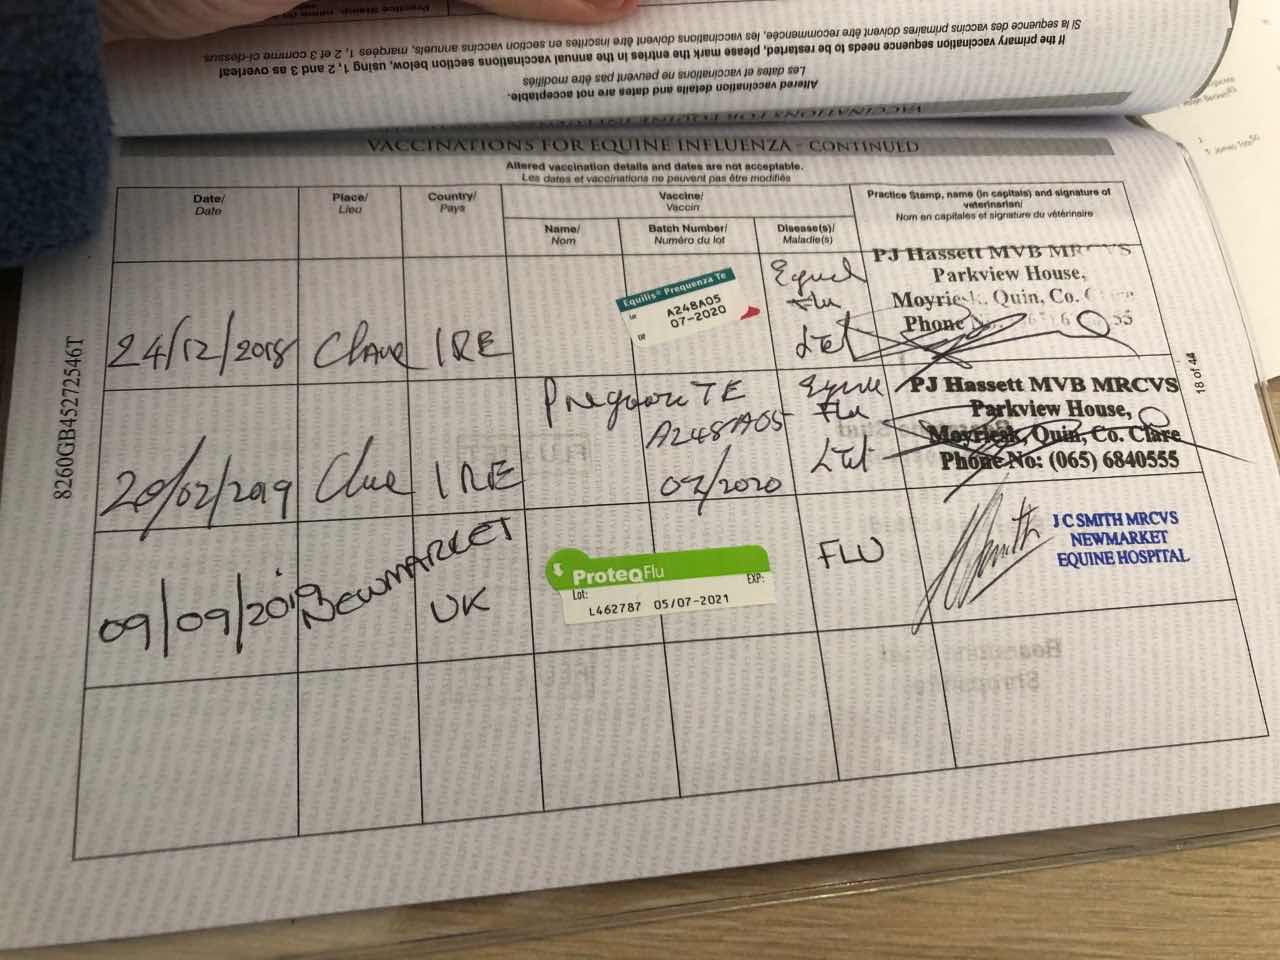 Si la sequence des vaccins primaires doivent être recommencée, les vaccinations doivent être inscrites en section vaccins annuels, marqées 1, 2 et 3 comme ci-dessus
If the primary vaccination sequence needs to be restarted, please mark the entries in the annual vaccinations section below, using 1, 2 and 3 as above overleaf
Les dates et vaccinations ne peuvent pas être modifiés
Altered vaccination details and dates are not acceptable.
VACCINATIONS FOR EQUINE INFLUENZA - CONTINUED
Altered vaccination details and dates are not acceptable.
Les dates et vaccinations ne peuvent pas être modifiés
Date/
Date
Place/
Lieu
Country/
Pays
Vaccine/
Vaccin
Name/
Nom
Batch Number/
Numéro du lot
Disease(s)/
Maladie(s)
Practice Stamp, name (in capitals) and signature of
veterinarian/
Nom en capitales et signature du vétérinaire
24/12/2018
Clare
IRE
Equilis® Prequenza Te
A248A05
07-2020
Flu
Tet
PJ Hassett MVB MRCVS
Parkview House,
Moyriesk, Quin, Co. Clare
Phone No:
20/02/2019
Clare
IRE
TE
A248A05
07/2020
Flu
Tet
PJ Hassett MVB MRCVS
Parkview House,
Moyriesk, Quin, Co. Clare
Phone No: (065) 6840555
09/09/2019
NEWMARKET
UK
ProteqFlu
Lot:
EXP:
L462787 05/07-2021
FLU
Smith
J C SMITH MRCVS
NEWMARKET
EQUINE HOSPITAL
8260GB45272546T
18 of 44